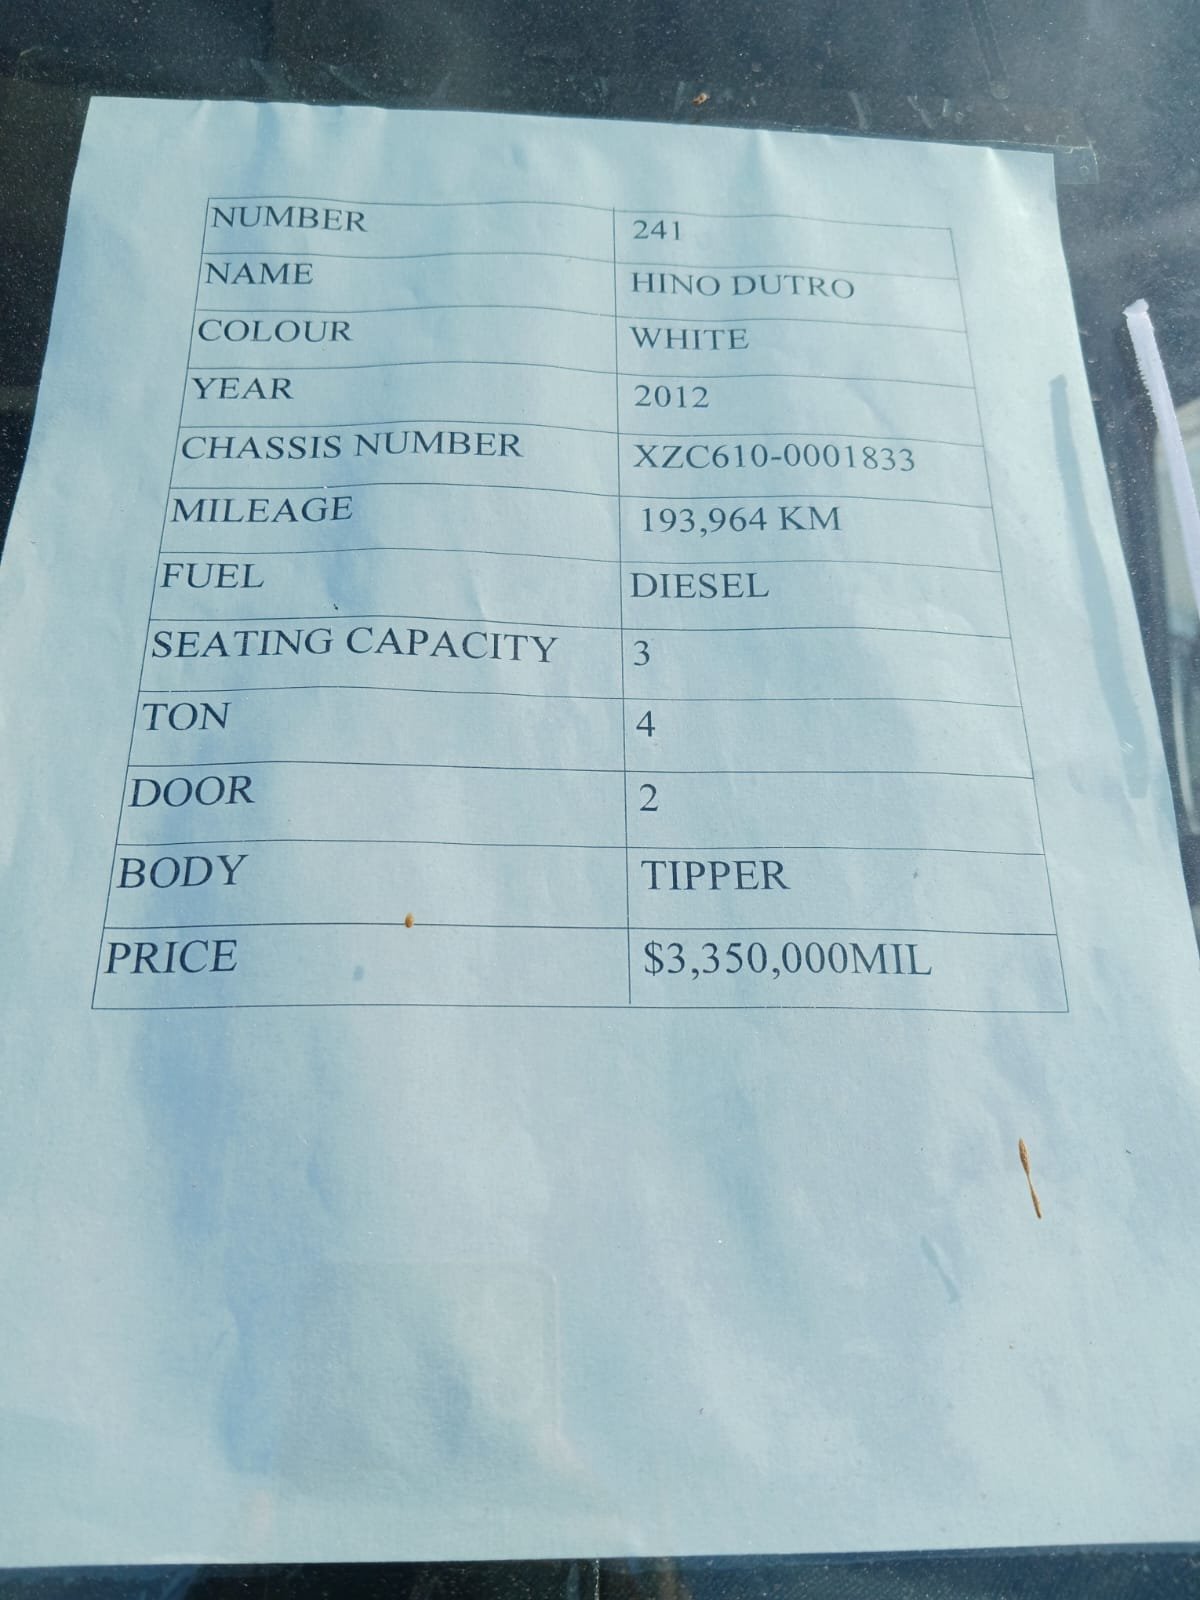 NUMBER 241
NAME HINO DUTRO
COLOUR WHITE
YEAR 2012
CHASSIS NUMBER XZC610-0001833
MILEAGE 193,964 KM
FUEL DIESEL
SEATING CAPACITY 3
TON 4
DOOR 2
BODY TIPPER
PRICE $3,350,000MIL